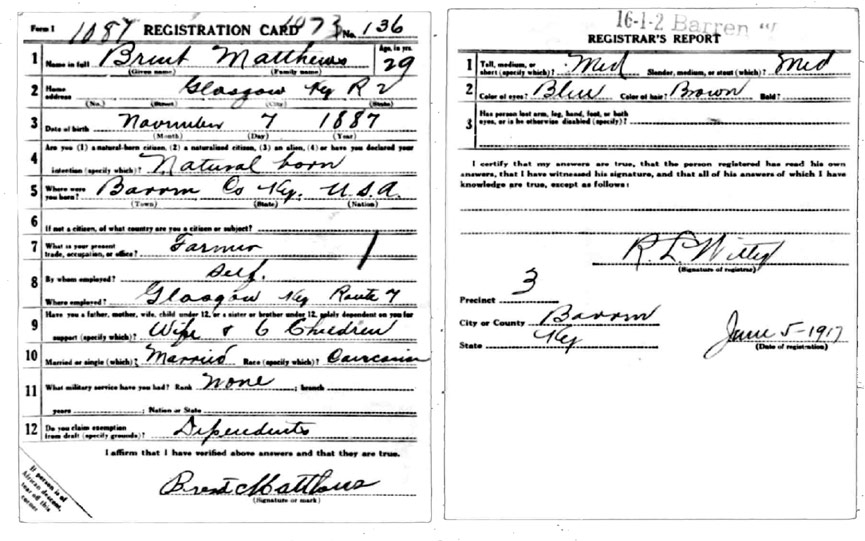 Form 1 1087 REGISTRATION CARD 1073 No. 136
1 Name in full Brent Matthews Age, in yrs. 29
(Given name) (Family name)
2 Home address Glasgow Ky R 2
(No.) (Street) (City) (State)
3 Date of birth November 7 1887
(Month) (Day) (Year)
4 Are you (1) a natural-born citizen, (2) a naturalized citizen, (3) an alien, (4) or have you declared your
intention (specify which)? Natural born
5 Where were you born? Barren Co Ky. U.S.A.
(Town) (State) (Nation)
6 If not a citizen, of what country are you a citizen or subject?
7 What is your present trade, occupation, or office? Farmer
8 By whom employed? Self.
Where employed? Glasgow Ky Route 7
9 Have you a father, mother, wife, child under 12, or a sister or brother under 12, solely dependent on you for
support (specify which)? Wife & 6 Children
10 Married or single (which)? Married Race (specify which)? Caucasian
11 What military service have you had? Rank None ; branch
years ; Nation or State
12 Do you claim exemption from draft (specify grounds)? Dependents
I affirm that I have verified above answers and that they are true.
Brent Matthews
(Signature or mark)
If person is of
African descent,
tear off this
corner
16-1-2 Barren
REGISTRAR'S REPORT
1 Tall, medium, or short (specify which)? Med Slender, medium, or stout (which)? Med
2 Color of eyes? Blue Color of hair? Brown Bald?
3 Has person lost arm, leg, hand, foot, or both
eyes, or is he otherwise disabled (specify)?
I certify that my answers are true, that the person registered has read his own
answers, that I have witnessed his signature, and that all of his answers of which I have
knowledge are true, except as follows:
R. L. Witty
(Signature of registrar)
Precinct 3
City or County Barren
State Ky
June 5-1917
(Date of registration)